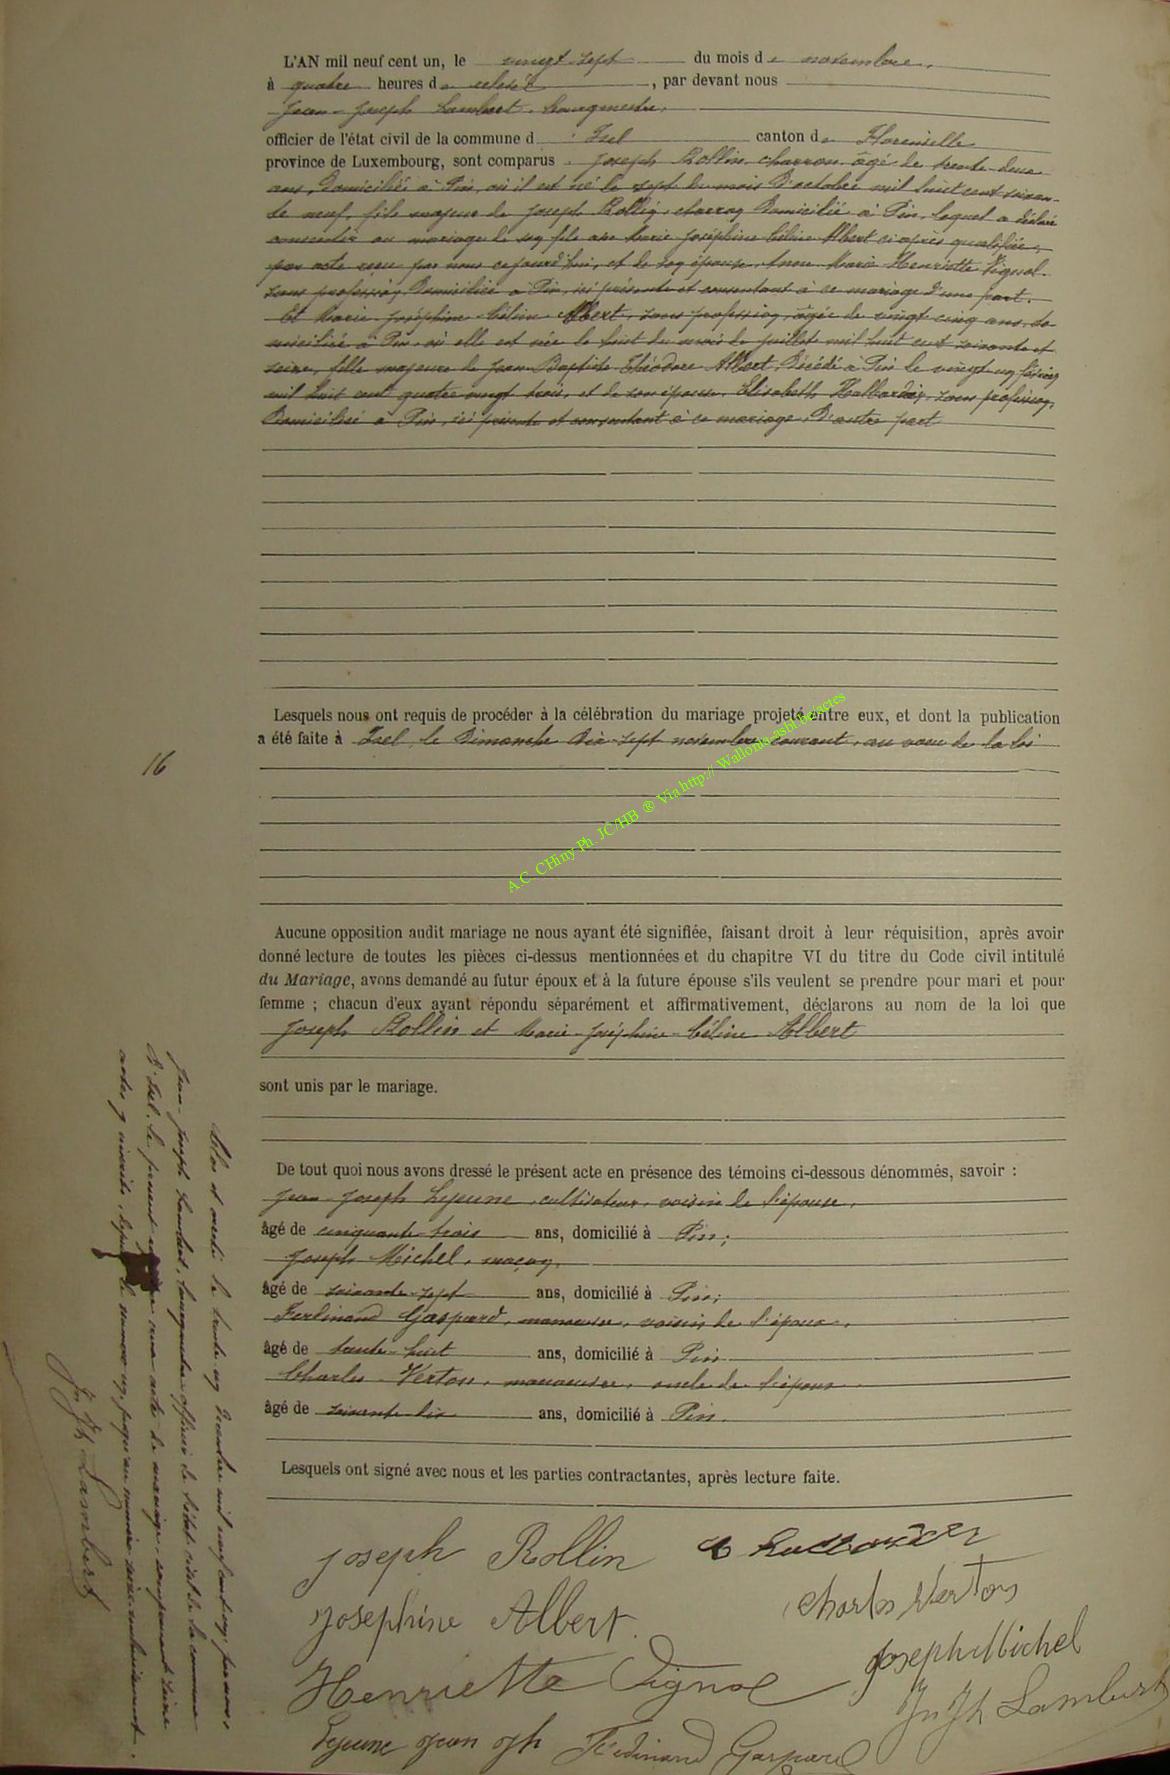 L'AN mil neuf cent un, le vingt-sept du mois de novembre,
à quatre heures de relevée, par devant nous
Jean-Joseph Lambert, bourgmestre,
officier de l'état civil de la commune d'Izel canton de Florenville
province de Luxembourg, sont comparus Joseph Rollin, charron, âgé de trente-deux
ans, domicilié à Pin, où il est né le sept du mois d'octobre mil huit cent soixan-
te neuf, fils majeur de Joseph Rollin, charron domicilié à Pin, lequel a déclaré
consentir au mariage de son fils avec Marie Joséphine Céline Albert ci après qualifiée,
par acte reçu par nous cejourd'hui, et de son épouse Anne Marie Henriette Vignol
sans profession, domiciliée à Pin, ici présente et consentant à ce mariage d'une part.
Et Marie Joséphine Céline Albert, sans profession, âgée de vingt cinq ans, do-
miciliée à Pin, où elle est née le huit du mois de juillet mil huit cent soixante et
seize, fille majeure de Jean Baptiste Théodore Albert, décédé à Pin le vingt un février
mil huit cent quatre vingt trois, et de son épouse Elisabeth Halbardier, sans profession,
domiciliée à Pin, ici présente et consentant à ce mariage d'autre part
Lesquels nous ont requis de procéder à la célébration du mariage projeté entre eux, et dont la publication
a été faite à Izel, le dimanche dix-sept novembre courant, au vœu de la loi
16
A.C. CHiny Ph. JC/HB ® Via http:// Wallonia-asbl be/actes
Aucune opposition audit mariage ne nous ayant été signifiée, faisant droit à leur réquisition, après avoir
donné lecture de toutes les pièces ci-dessus mentionnées et du chapitre VI du titre du Code civil intitulé
du Mariage, avons demandé au futur époux et à la future épouse s'ils veulent se prendre pour mari et pour
femme ; chacun d'eux ayant répondu séparément et affirmativement, déclarons au nom de la loi que
Joseph Rollin et Marie-Joséphine-Céline Albert
sont unis par le mariage.
De tout quoi nous avons dressé le présent acte en présence des témoins ci-dessous dénommés, savoir :
Jean-Joseph Lejeune, cultivateur, voisin de l'épouse,
âgé de cinquante trois ans, domicilié à Pin;
Joseph Michel, maçon,
âgé de soixante-sept ans, domicilié à Pin;
Ferdinand Gaspard, manœuvre, voisin de l'époux,
âgé de trente-huit ans, domicilié à Pin
Charles Verton, manœuvre, oncle de l'époux
âgé de soixante dix ans, domicilié à Pin.
Lesquels ont signé avec nous et les parties contractantes, après lecture faite.
Joseph Rollin
Josephine Albert
Charles Verton
Joseph Michel
Henriette Vignol
Jn Jh Lambert
Lejeune Jean Jph Ferdinand Gaspard
Clos et arrêté le trente un décembre mil neuf cent un, par nous,
Jean-Joseph Lambert, bourgmestre officier de l'état civil de la commune
d'Izel, le présent registre aux actes de mariage, comprenant seize
actes y inscrits, depuis le numéro un, jusqu'au numéro seize inclusivement.
Jn Jh Lambert